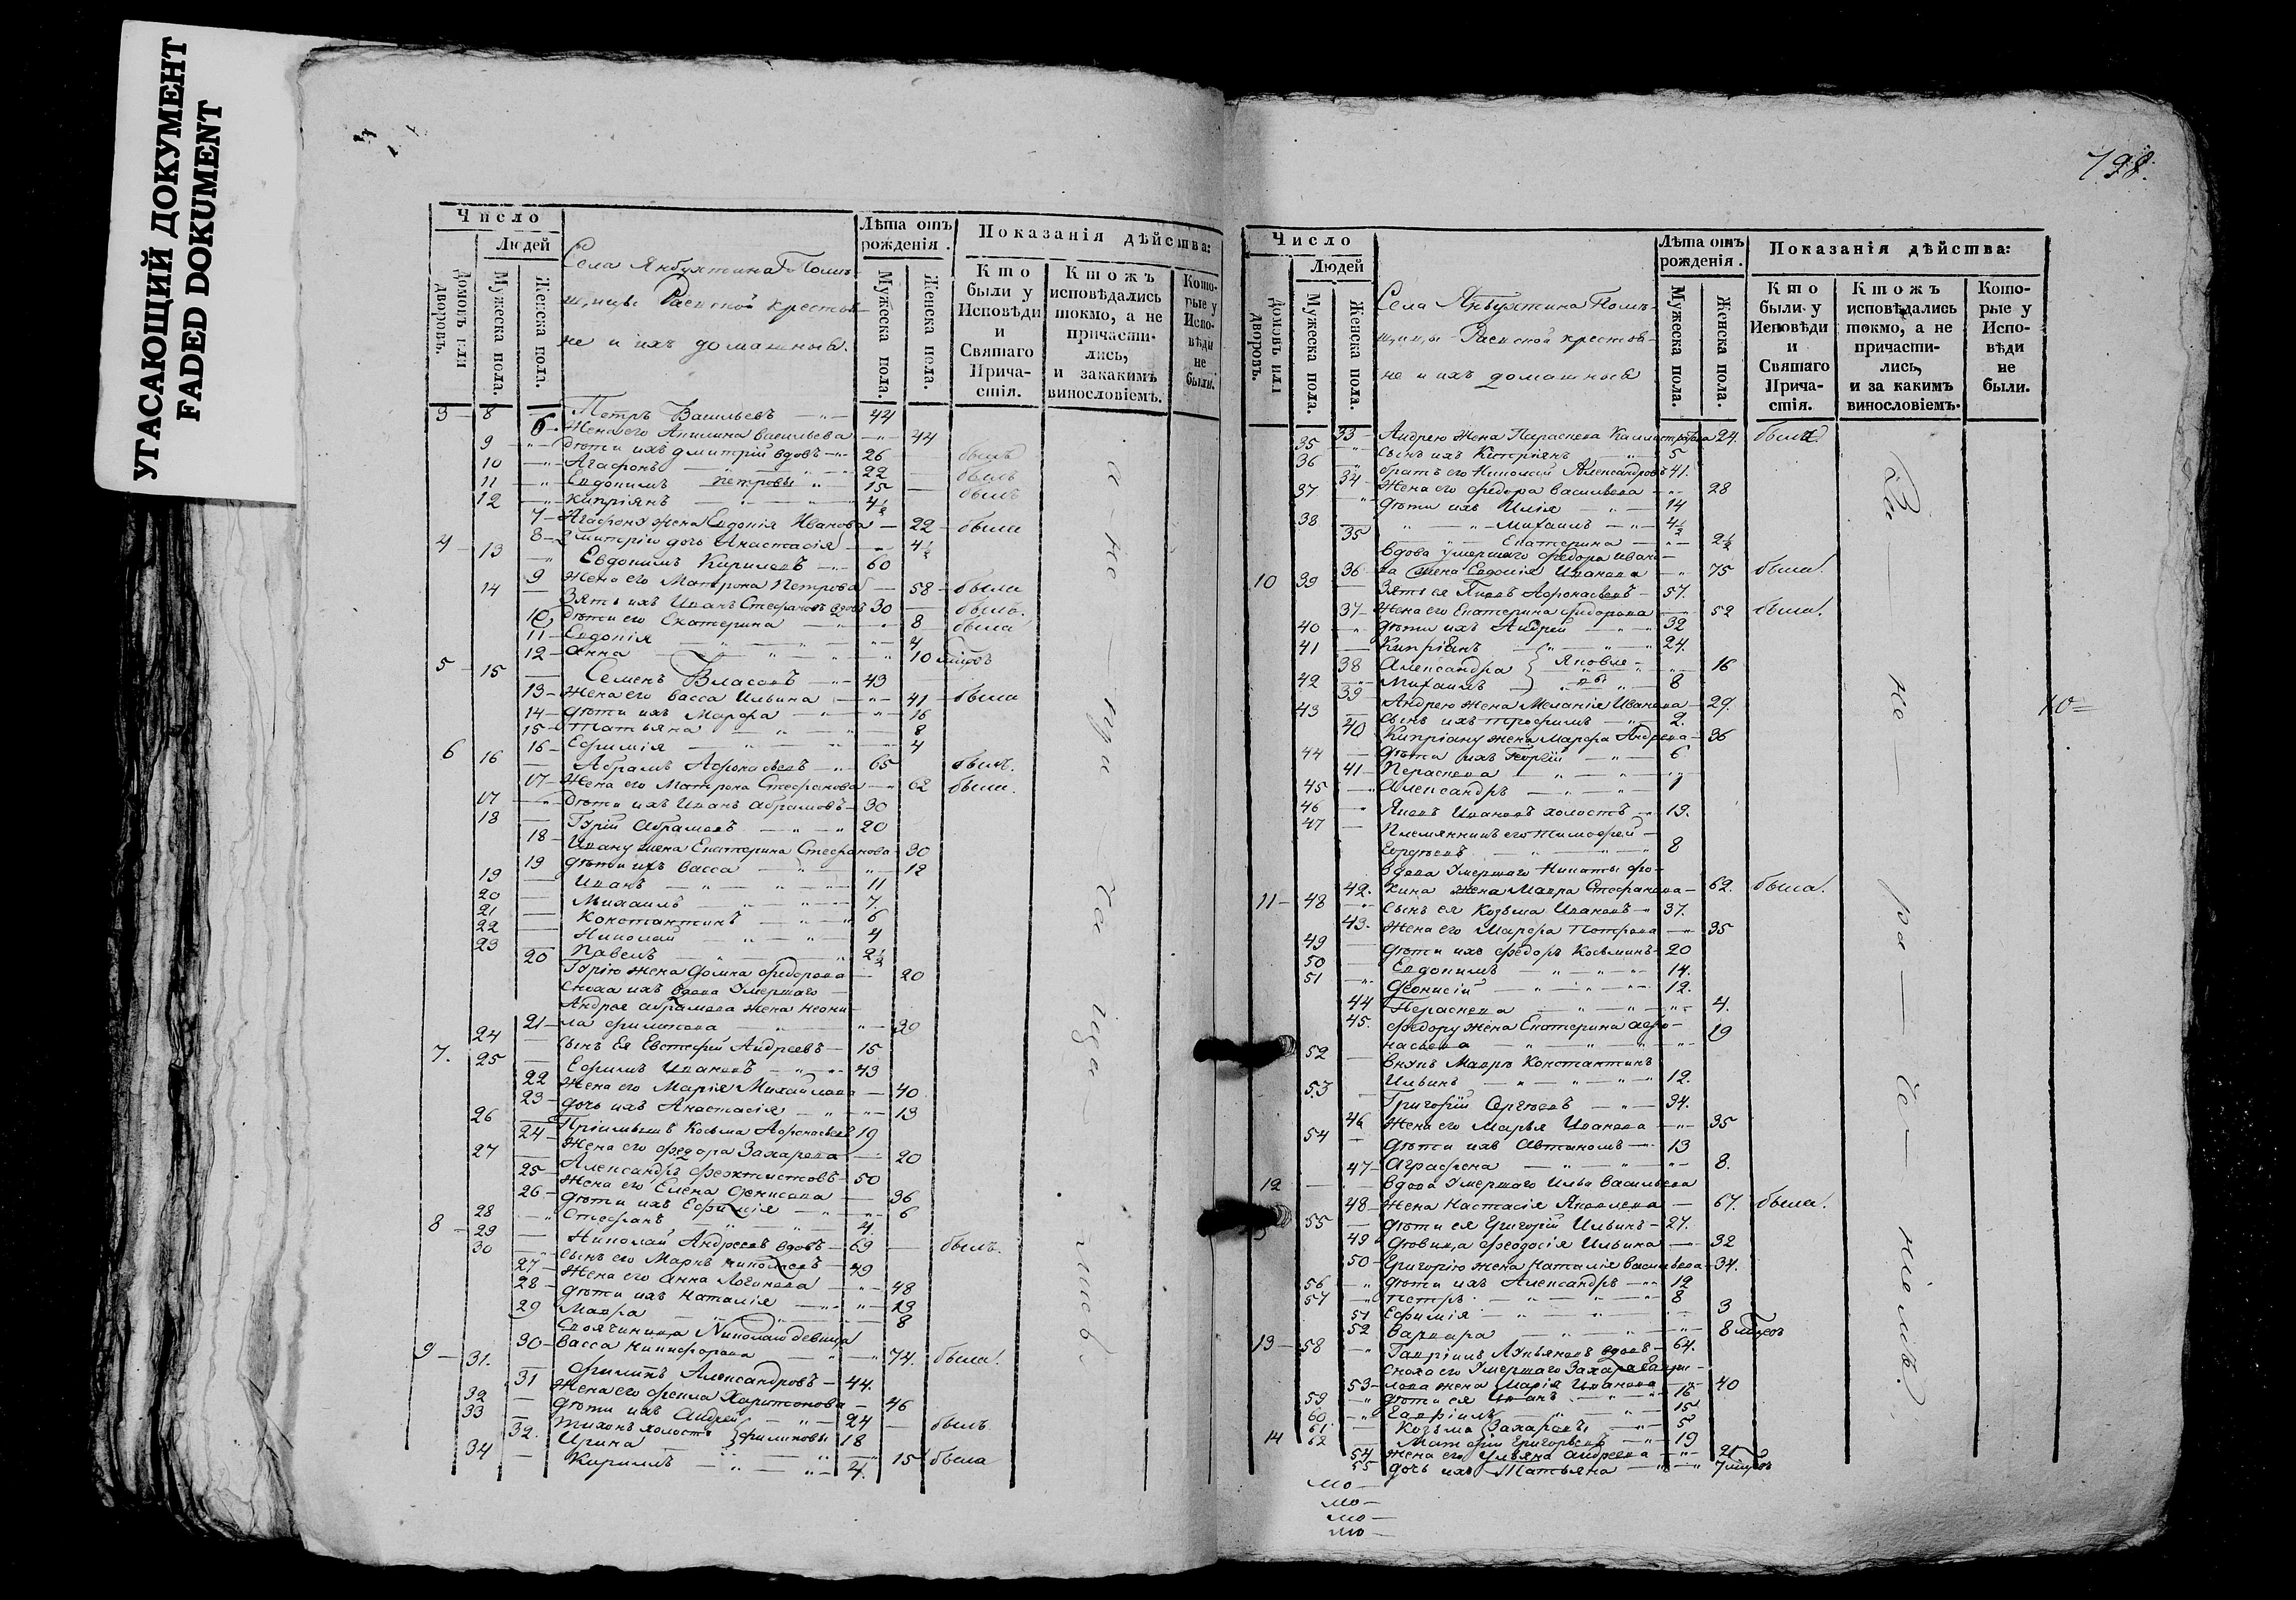 УГАСАЮЩИЙ ДОКУМЕНТ
FADED DOKUMENT
Число
Людей
домовъ или дворовъ.
Мужеска пола.
Женска пола.
Села Янбухтина Помѣ
щицы Раевской крестья
не и ихъ домашныя.
Лѣта отъ рожденія.
Мужеска пола.
Женска пола.
Показанія дѣйства:
Кто были у Исповѣди и Святаго Причастія.
Ктожъ исповѣдались токмо, а не причастились, и закакимъ винословіемъ.
Которые у Исповѣди не были.
3 8 Петръ Васильевъ 44
6 Жена его Акилина Васильева 44
9 дѣти ихъ Дмитрій вдовъ 26 былъ
10 Агафонъ 22 былъ
11 Евдокимъ Петровы 15 былъ
12 Кипріянъ 4½
7 Агафона жена Евдокія Иванова 22 была
8 Дмитрія дочь Анастасія 4½
4 13 Евдокимъ Кириловъ 60
9 Жена его Матрона Петрова 58 была
14 Зять ихъ Иванъ Стефановъ вдовъ 30 былъ
10 дѣти его Екатерина 8 была
11 Евдокія 4
12 Анна 10
5 15 Семенъ Власовъ 43
13 Жена его Васса Ильина 41 была
14 дѣти ихъ Марфа 16
15 Татьяна 8
16 Ефимія 4
6 16 Абрамъ Афонасьевъ 65 былъ.
17 Жена его Матрона Стефанова 62 была.
17 дѣти ихъ Иванъ Абрамовъ 30
18 Гурій Абрамовъ 20
18 Ивану жена Екатерина Стефанова 30
19 дѣти ихъ Васса 12
19 Иванъ 11
20 Михаилъ 7.
21 Константинъ 6
22 Николай 4
23 Павелъ 2½
20 Гурію жена Домна Федорова 20
Сноха ихъ вдова Умершаго
Андрея Абрамова жена Неони
21 ла Филипова 39
24 сынъ Ея Евстафій Андреевъ 15
7. 25 Ефимъ Ивановъ 43
22 Жена его Марія Михайлова 40
23 дочь ихъ Анастасія 13
26 Пріимышъ Косьма Афонасьевъ 19
24 Жена его Федора Захарова 20
27 Александръ Феоктистовъ 50
25 Жена его Елена Денисова 36
26 дѣти ихъ Ефимія 6
28 Стефанъ 4.
8 29 Николай Андреевъ вдовъ 69 былъ.
30 сынъ его Маркъ Николаевъ 49
27 Жена его Анна Логинова 48
28 дѣти ихъ Наталія 13
29 Мавра 8
Своячиница Николаю девица
30 Васса Никифорова 74. была.
9 31. Филипъ Александровъ 44.
31 Жена его Фекла Харитонова 46
32 дѣти ихъ Андрей 24 былъ
33 Тихонъ холостъ Филиповы 18
32. Ирина 15 была
34 Кирилъ 4.
198.
Число
Людей
домовъ или дворовъ.
Мужеска пола.
Женска пола.
Села Янбухтина Помѣ
щицы Раевской крестья
не и ихъ домашныя
Лѣта отъ рожденія.
Мужеска пола.
Женска пола.
Показанія дѣйства:
Кто были у Исповѣди и Святаго Причастія.
Ктожъ исповѣдались токмо, а не причастились, и за какимъ винословіемъ.
Которые у Исповѣди не были.
33 Андрею жена Параскева Калистратова 24. была
35 сынъ ихъ Кипріянъ 5
36 братъ его Николай Александровъ 41.
34 Жена его Федора Васильева 28
37 дѣти ихъ Илія 14
38 Михаилъ 4½
35 Екатерина 2½
вдова умершаго Федора Ивано
36 ва жена Евдокія Иванова 75 была.
10 39 Зять ея Яковъ Афонасьевъ 57.
37 Жена его Екатерина Федорова 52 была.
40 дѣти ихъ Андрей 32
41 Кипріянъ 24.
38 Александра Яковле 16
42 Михаилъ вы 8
39 Андрею жена Меланія Иванова 29.
43 сынъ ихъ Трофимъ 2.
40 Кипріану жена Марфа Андреева 36
44 дѣти ихъ Георгій 6
41 Параскева
45 Александръ 1
46 Яковъ Ивановъ холостъ 19.
47 Племянникъ его Тимофей
8
вдова Умершаго Никиты Фо
42. кина жена Мавра Стефанова 62. была.
11 48 сынъ ея Козьма Ивановъ 37.
43. Жена его Марфа Петрова 35
49 дѣти ихъ Федоръ Косьминъ 20
50 Евдокимъ 14.
51 Деонисій 12.
44 Параскева 4.
45. Федору жена Екатерина Афо
насьева 19
52 внукъ Мавры Константинъ
Ильинъ 12.
53 Григорій Сергѣевъ 34.
46 Жена его Марья Иванова 35
54 дѣти ихъ Автономъ 13
47 Аграфена 8.
12 вдова Умершаго Ильи Васильева
48 жена Настасія Яковлева 67. была.
55 дѣти ея Григорій Ильинъ 27.
49 дѣвица Феодосія Ильина 32
50 Григорію жена Наталія Васильева 34.
56 дѣти ихъ Александръ 12
57 Петръ 8
51 Ефимія 3
52 Варвара 8
13 58 Гавріилъ Лукьяновъ вдовъ 64.
Сноха его Умершаго Захара Гаври
53 лова жена Марія Иванова 40
59 дѣти ея Иванъ 16
60 Гавріилъ 15
61 Козьма Захаровы 5
14 62 Григорьевъ 19
54 жена его Ульяна Андреева 21
55 дочь ихъ Татьяна 7